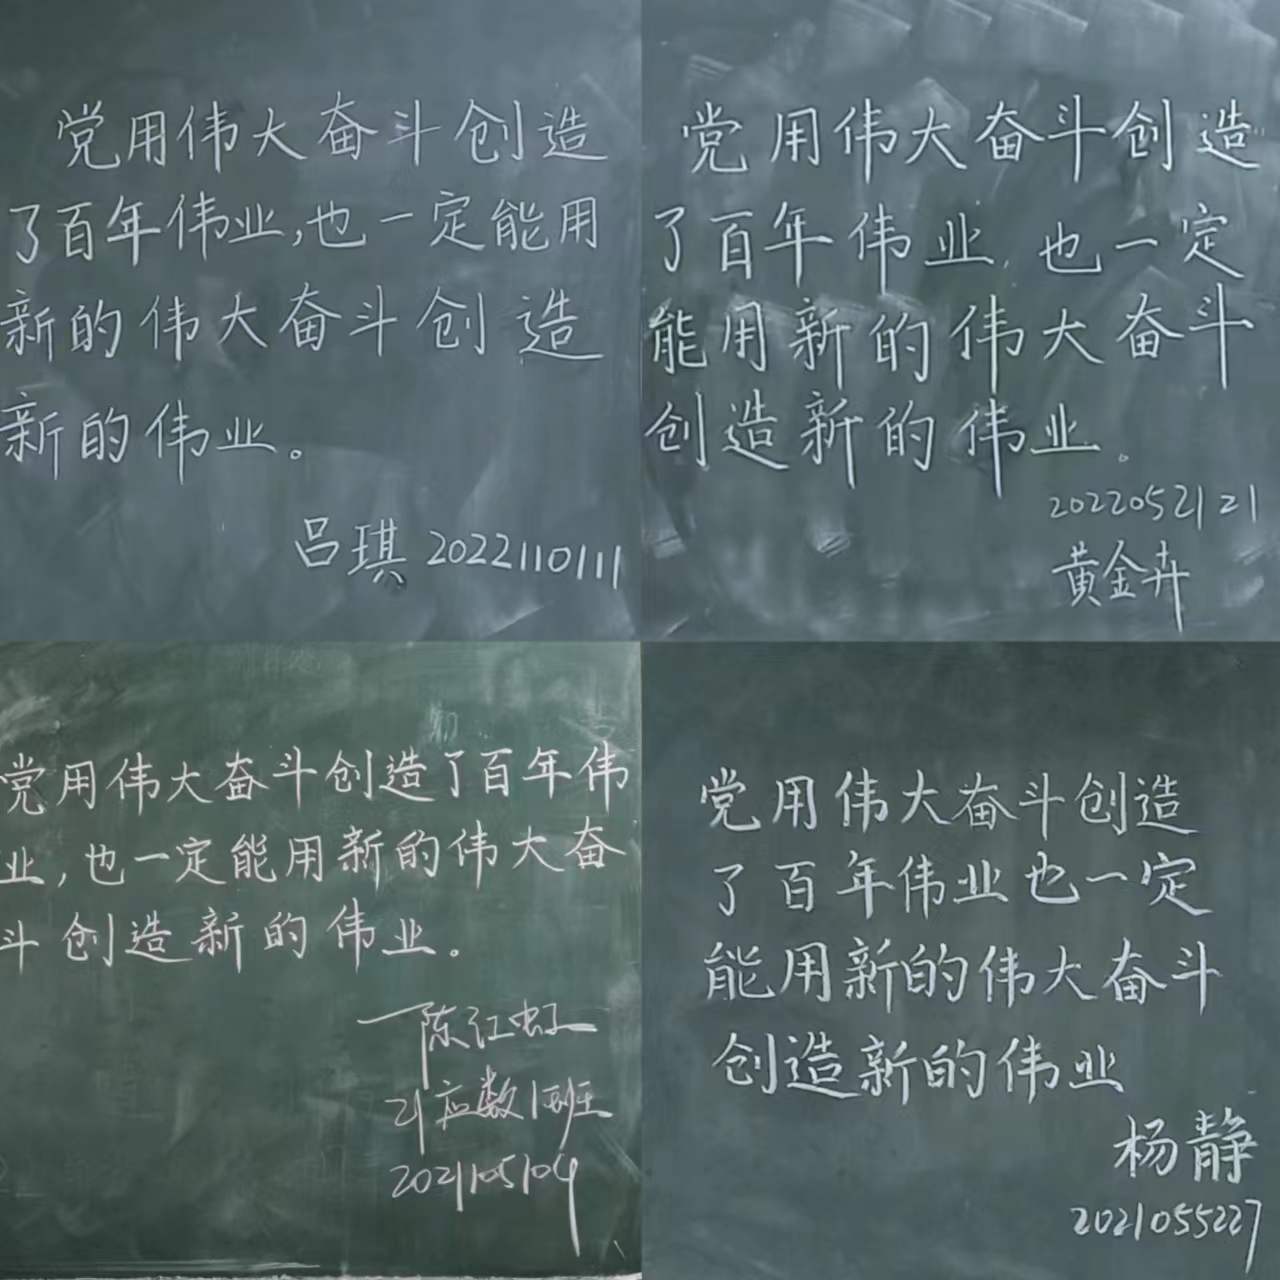 党用伟大奋斗创造
了百年伟业,也一定能用
新的伟大奋斗创造
新的伟业。
吕琪 2022110111
党用伟大奋斗创造
了百年伟业,也一定
能用新的伟大奋斗
创造新的伟业。
2022052121
黄金卉
党用伟大奋斗创造了百年伟
业,也一定能用新的伟大奋
斗创造新的伟业。
陈红虹
21应数1班
2021105104
党用伟大奋斗创造
了百年伟业也一定
能用新的伟大奋斗
创造新的伟业
杨静
2021055227